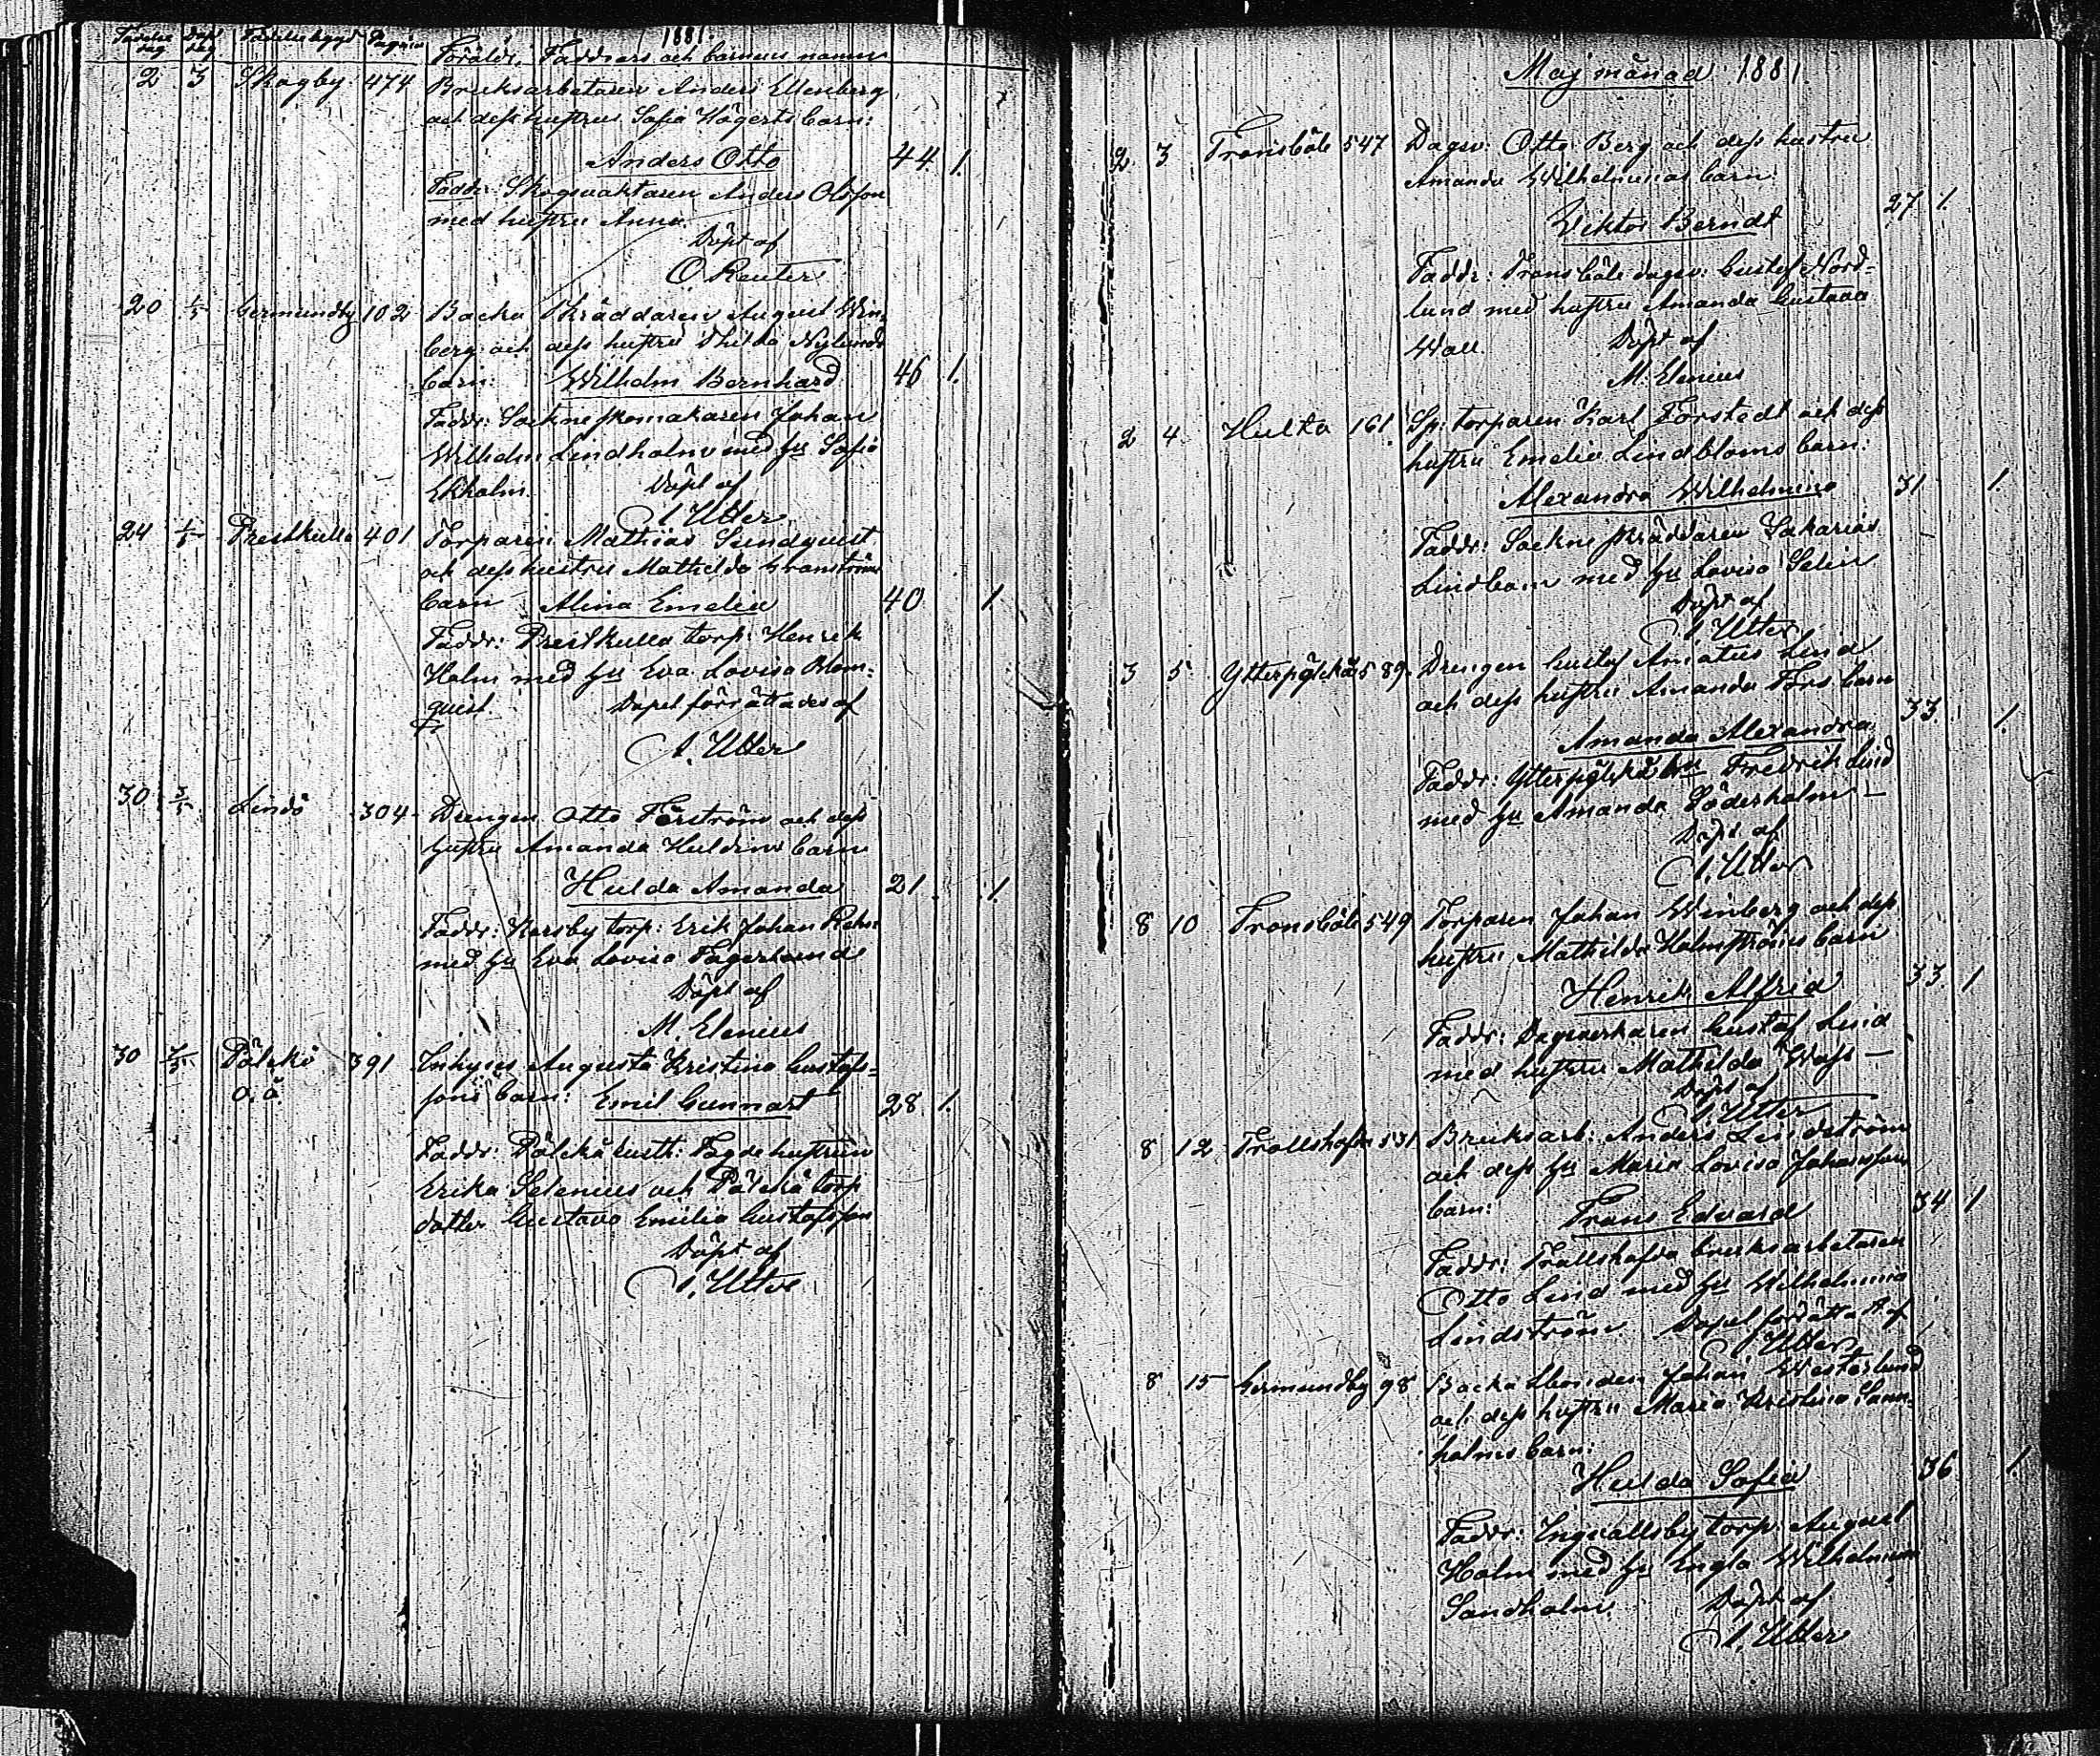 Födelse dag Döp dag Födelsebygd Pagina 1881.
Föräldr. Faddrars och barnens namn
2 3 Skogby 474 Bruksarbetaren Anders Ellenberg
och dess hustrus Sofia Högerts barn:
Anders Otto 44. 1.
Faddr: Skogsvaktaren Anders Olsson
med hustru Anna.
Döpt af
O. Reuter
20 1/5 Germundby 102 Backa Skräddaren August Win-
berg och dess hustru Thilda Nylunds
barn: Wilhelm Bernhard 46 1.
Faddr: Sockneskomakaren Johan
Wilhelm Lindholm med hu Sofia
Ekholm. Döpt af
A. Utter
24 1/5 Prestkulla 401 Torparen Mathias Sundqvist
och dess hustru Mathilda Granströms
barn Alina Emelia 40 1
Faddr: Prestkulla torp: Henrik
Holm med hu Eva Lovisa Blom-
qvist Dopet förrättades af
A. Utter
30 3/5 Lindö 304 Drengen Otto Forström och dess
hustru Amanda Huldins barn
Hulda Amanda 21 1.
Faddr: Karsby torp: Erik Johan
med hu Eva Lovisa Fagerlund
Döpt af
M. Elenius
30 Pålskö 391 Inhyses Augusta Kristina Gustafs-
o. ä. sons barn: Emil Gunnart 28 1.
Faddr: Pålskö rusth: Fogde hustrun
Erika Selenius och Pålskö torp
dotter Gustava Emilia Gustafsson
Döpt af
A. Utter
Maj månad 1881
2. 3 Tronsböle 547 Dagsv: Otto Berg och dess hustru
Amanda Wilhelminas barn
Viktor Berndt 27 1.
Faddr: Tronsböle dagsv: Gustaf Nord-
lund med hustru Amanda Gustava
Wall. Döpt af
M. Elenius
2 4 Hulta 161 Sp: torparen Karl Forstedt och dess
hustru Emelia Lindbloms barn:
Alexandra Wilhelmina 31 1.
Faddr: Sockne skräddaren Sakarias
Lindbom med hu Lovisa Selin
Döpt af
A. Utter
3 5 589. Drengen Gustaf Amatus Lind
och dess hustru Amanda Fors barn
Amanda Alexandra 33. 1.
Faddr: Fredrik Lind
med hu Amanda Söderholm —
Döpt af
A. Utter
8 10 Tronsböle 549 Torparen Johan Winberg och dess
hustru Mathilda Holmströms barn
Henrik Alfrid 33 1
Faddr: Dagsverkaren Gustaf Lind
med hustru Mathilda Wass —
Döpt af
A. Utter
8 12 Trollshofda 531 Bruksarb: Anders Lindström
och dess hu Maria Lovisa Johansson
barn: Frans Edvard 34 1
Faddr: Trollshofda bruksarbetaren
Otto Lind med hu Wilhelmina
Lindström. Dopet förrätta dt af
A. Utter
8 15 Germundby 98 Backa Johan Westerlund
och dess hustru Maria Kristina
holms barn:
Hulda Sofia 36 1.
Faddr: Ingvallsby torp: August
Holm med hu Engla Wilhelmina
Sandholm. Döpt af
A. Utter